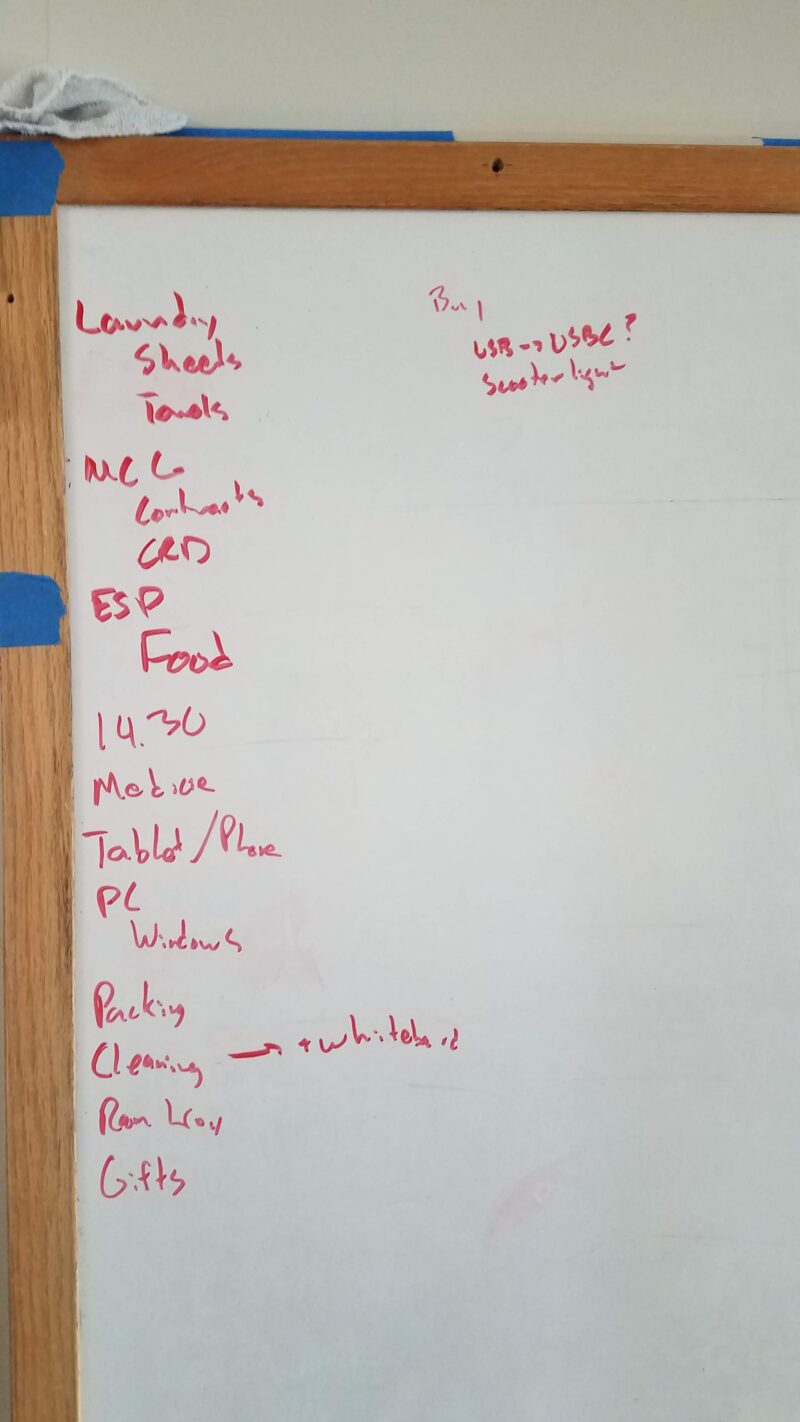 Laundry
Sheets
Towels
MCC
Contracts
CRD
ESP
Food
14.30
Tablet/Phone
PC
Windows
Packing
Cleaning → + whiteboard
Gifts
Buy
USB → USBC?
Scooter light